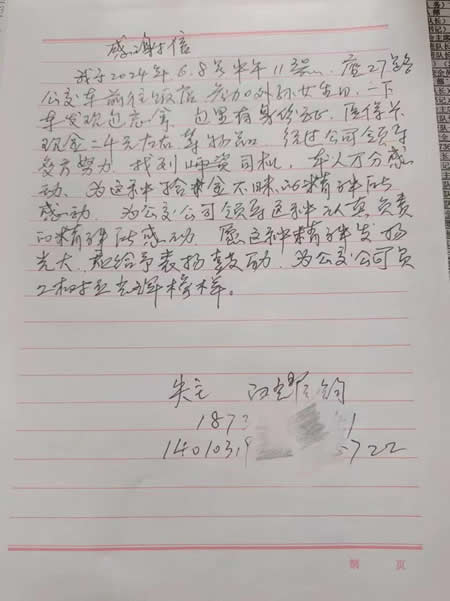 感谢信
我于2024年6.8号上午11点 座27路
公交车前往饭店 参加外孙女生日，一下
车发现包忘拿，包里有身份证，医保卡
现金二千元左右等物品，经过公司领导
多方努力，找到师资司机，本人万分感
动，为这种拾金不昧的精神所
感动，为公交公司领导这种认真负责
的精神所感动，愿这种精神发扬
光大，应给予表扬鼓励，为公交公司员
工树立光辉榜样。
失主
187 1
140103 722
页